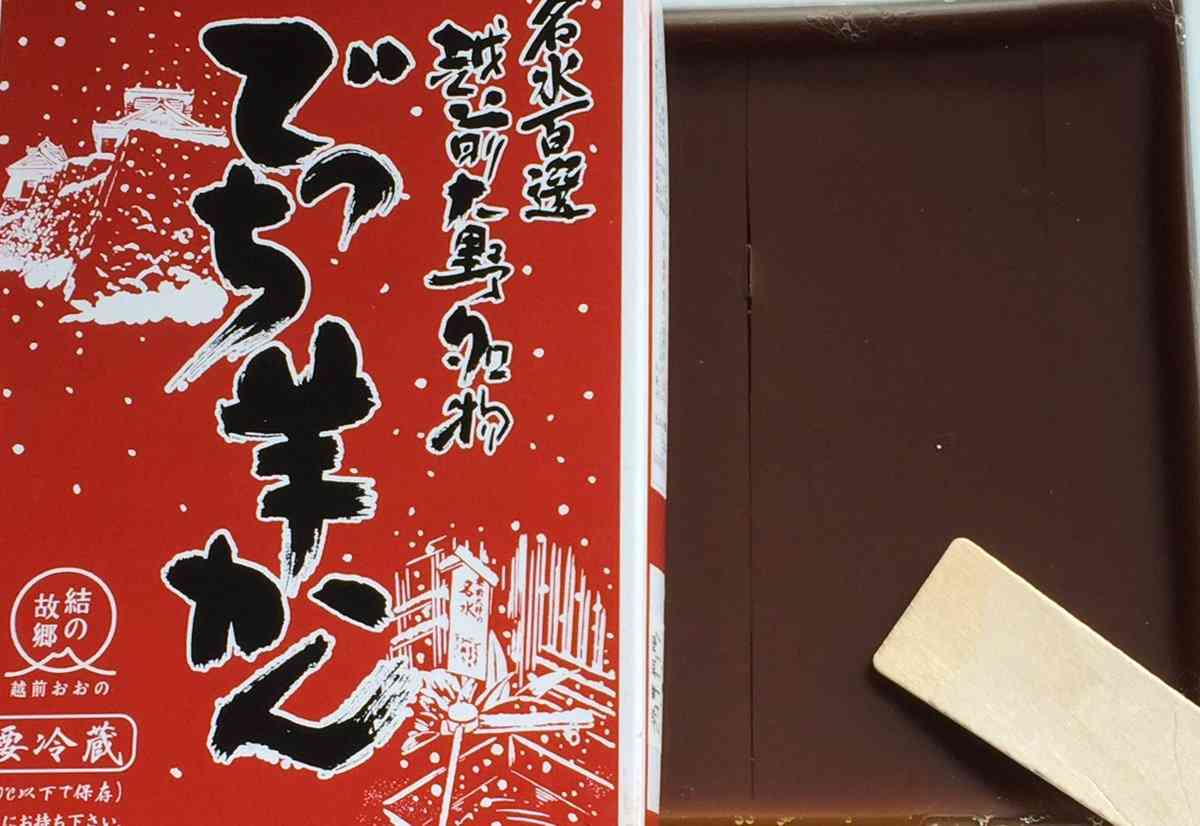 名水百選
越前大野名物
でっち羊かん
名水
結の
故郷
越前おおの
要冷蔵
℃以下で保存)
にお持ち下さい。